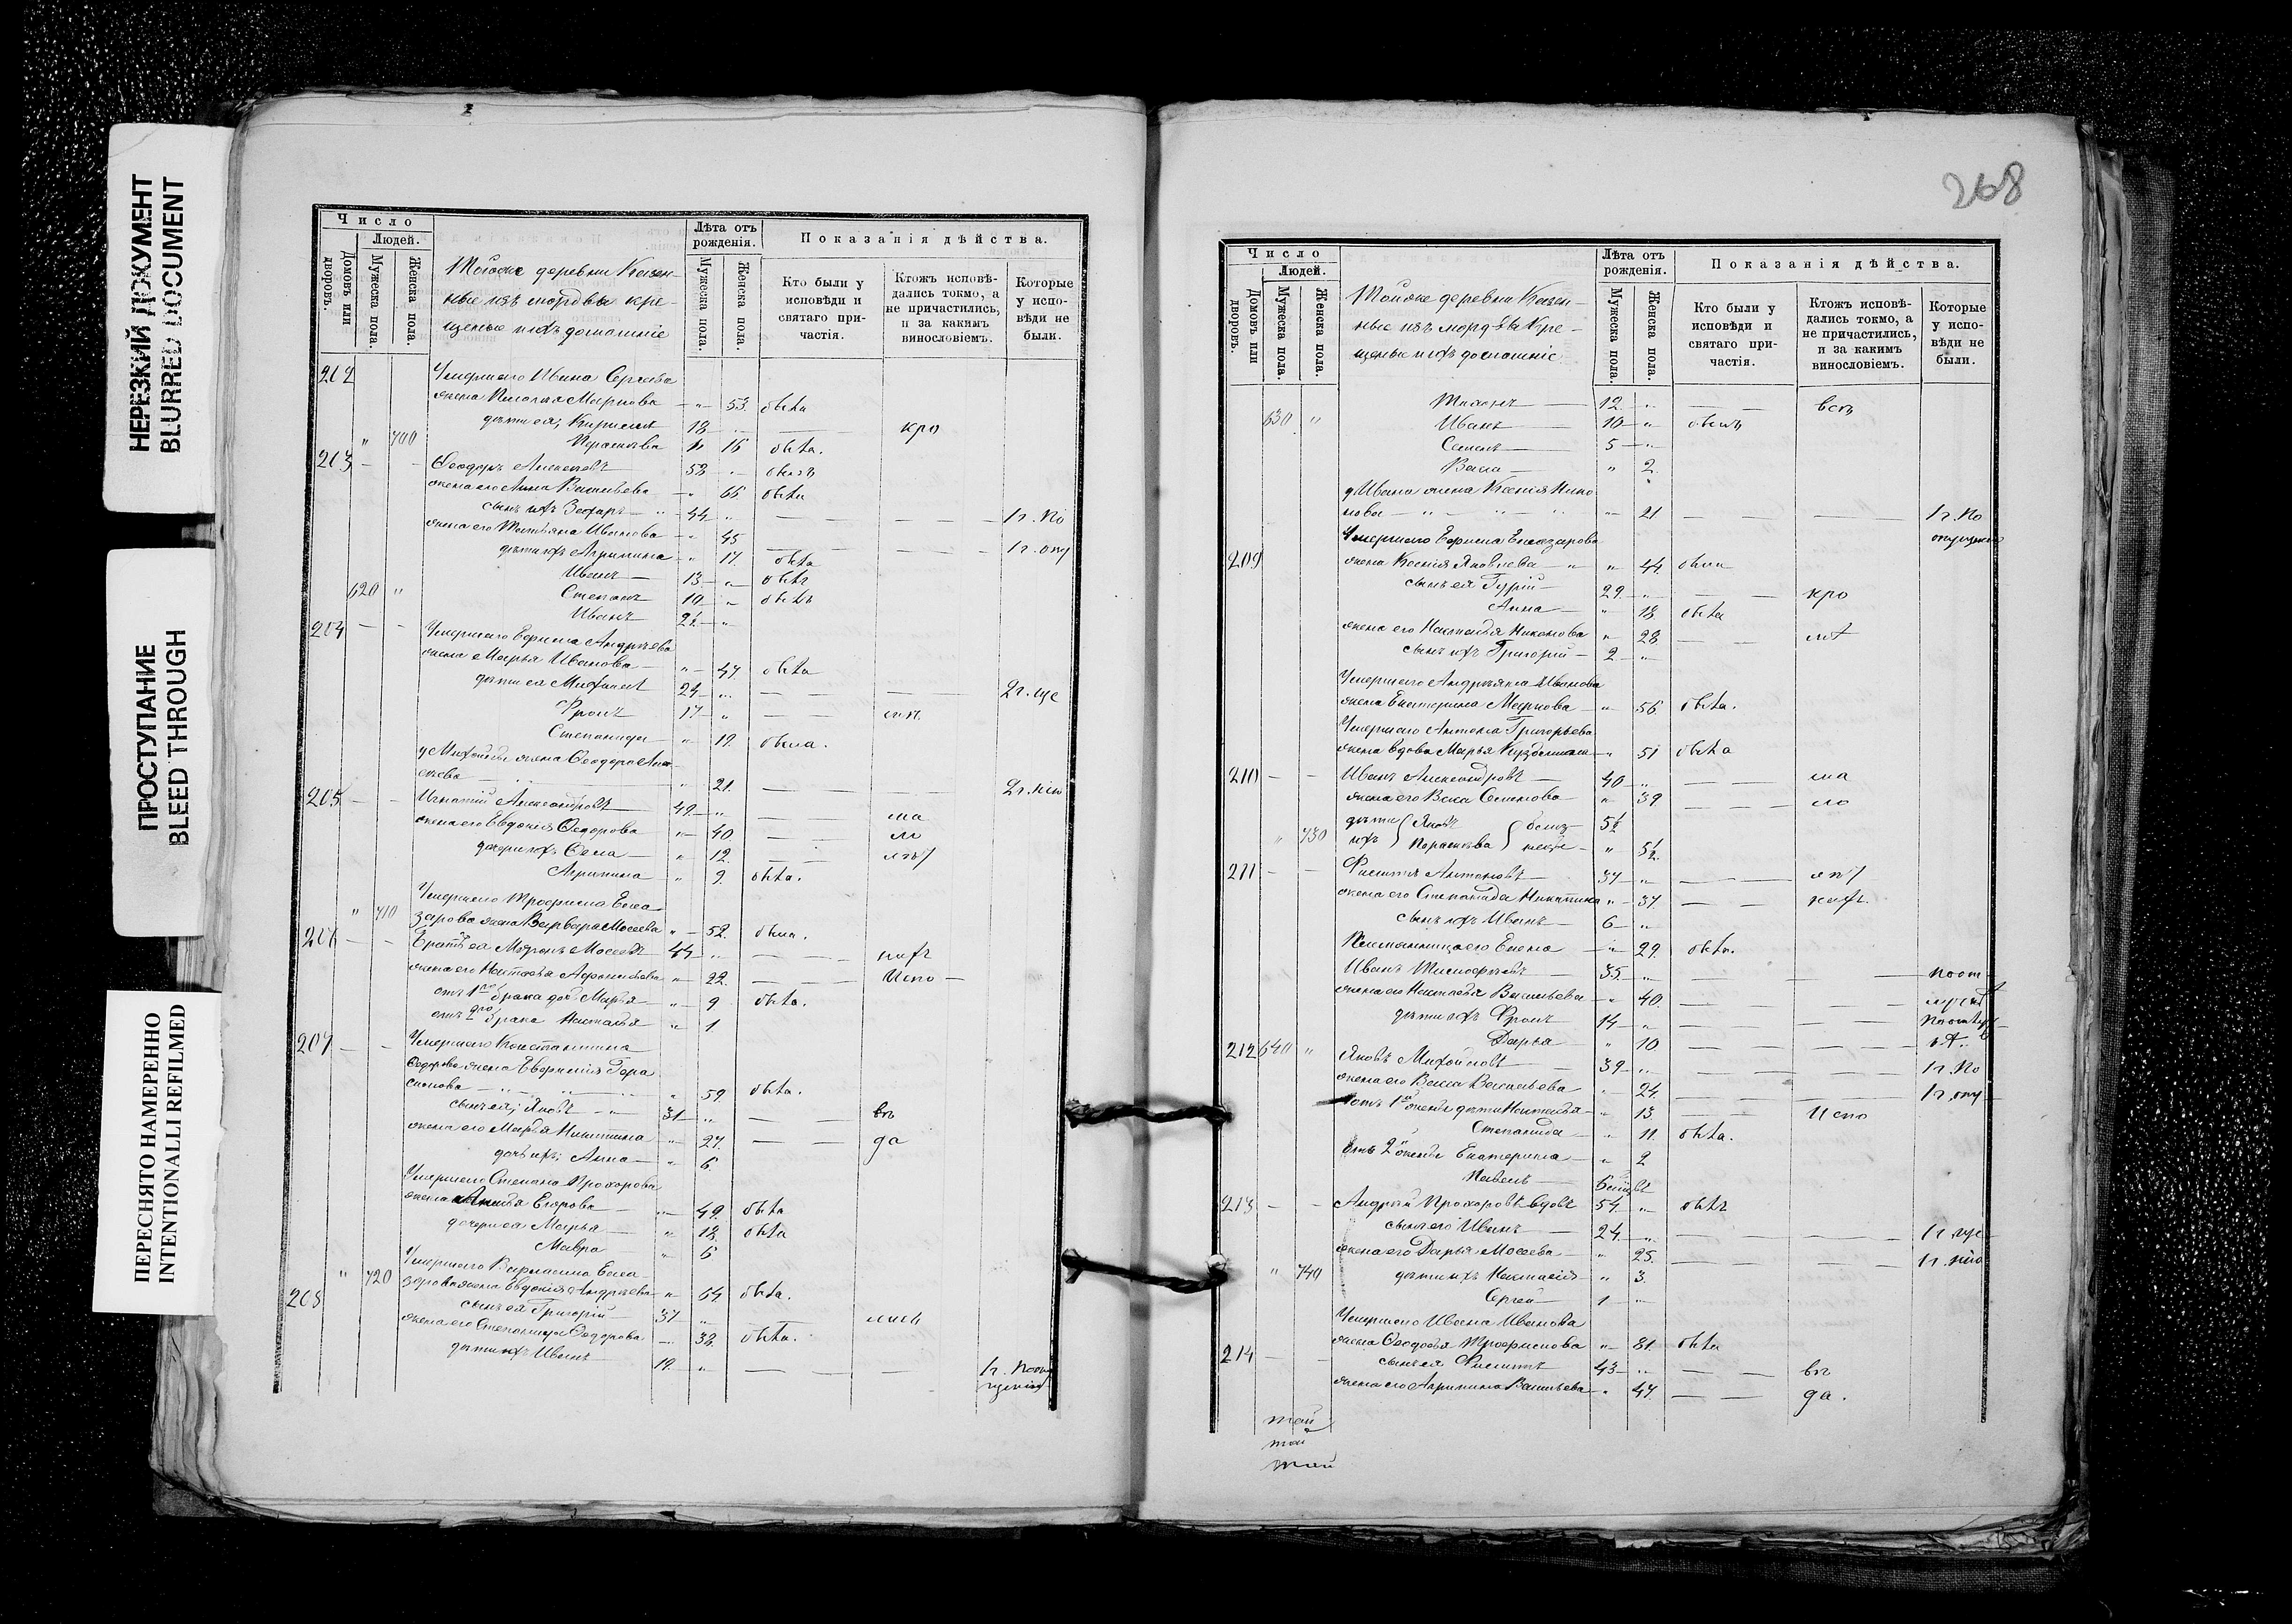 НЕРЕЗКИЙ ДОКУМЕНТ
BLURRED DOCUMENT
ПРОСТУПАНИЕ
BLEED THROUGH
ПЕРЕСНЯТО НАМЕРЕННО
INTENTIONALLI REFILMED
Число
Людей.
Домовъ или дворовъ.
Мужеска пола.
Женска пола.
Тойже деревни Казен-
ные изъ мордвы кре-
щеные и ихъ домашніе
Лѣта отъ рожденія.
Мужеска пола.
Женска пола.
Показанія дѣйства.
Кто были у исповѣди и святаго при-частія.
Ктожъ исповѣ-дались токмо, а не причастились, и за какимъ винословіемъ.
Которые у испо-вѣди не были.
202 Умершаго Ивана Сергѣева
жена Пелагея Маркова — " 53 была
дѣти ея, Кирилъ 18 " — кро
" 700 Прасковья " 16 была.
203 — - Ѳеодоръ Алексѣевъ 58 " былъ
жена его Анна Васильева — " 66 была
сынъ ихъ Захаръ — 44 " — — — 1 г. по
жена его Татьяна Иванова — " 45 — — 1 г. опу
дѣти ихъ Агрипина — " 17 была
Иванъ — 13 — " былъ
620 " Степанъ 10 — " былъ
Иванъ 2½ "
204 — - Умершаго Ефима Андреева
жена Марья Иванова — " 47 была
дѣти ея Михаилъ 24 " — — 2 г. ще
Фролъ 17 " —
Степанида — " 19 была.
у Михаилы жена Ѳеодора Але
ксѣева — " 21. — — 2 г. нію
205 — - Игнатій Александровъ 49 " — ма
жена его Евдокія Ѳедорова " 40 — ло
дочери ихъ Ѳекла — " 12 —
Агрипина " 9 была.
Умершаго Трофима Елеа
" 710 зарова жена Варвара Мосеева " 52 была.
206 — - Братъ ея Миронъ Мосеевъ 44 " —
жена его Наталья Афонасьева " 22 — Испо —
отъ 1го брака дочь Марья — " 9 была.
отъ 2го брака Наталья " 1
207 — - Умершаго Константина
Ѳедорова жена Евфимія Гера
симова — " 59 была.
сынъ ея; Яковъ — 31 " — въ
жена его Марья Никитина " 27 — да
дочь ихъ; Анна — " 6
Умершаго Степана Прохорова
жена Егорова " 49 была
дочери ея Марья — " 18 была
Мавра — " 6
Умершаго Варлаама Елеа
" 720 зарова жена Евдокія Андреева " 64 была.
208 сынъ ея Григорій — 37 " —
жена его Степанида Ѳедорова — 38 была.
дѣти ихъ Иванъ 19 " — —
268
Число
Людей.
Домовъ или дворовъ.
Мужеска пола.
Женска пола.
Тойже деревни Казен-
ные изъ мордвы кре-
щеные и ихъ домашніе
Лѣта отъ рожденія.
Мужеска пола.
Женска пола.
Показанія дѣйства.
Кто были у исповѣди и святаго при-частія.
Ктожъ исповѣ-дались токмо, а не причастились, и за какимъ винословіемъ.
Которые у испо-вѣди не были.
12 " —
630 " Иванъ — 10 " былъ
Семенъ — 5 "
Васса — " 2
у Ивана жена Ксенія Нико
нова — " 21 — — 1 г. по
Умершаго Ефима Елеазарова опущенію
209 жена Ксенія Яковлева — " 44 была
сынъ ея Гурій 29 " — кро
Анна — " 18 была
жена его Наталья Никонова " 28 —
сынъ ихъ Григорій — 2 "
Умершаго Андреяна Иванова
жена Екатерина Маркова — " 56 была.
Умершаго Антона Григорьева
жена вдова Марья Кузьмина " 51 была
210 — - Иванъ Александровъ — 40 " — ма
жена его Васса Семенова " 39 — ло
дѣти Яковъ близ- 5½
" 730 ихъ Прасковья нецы — " 5½
211 — - Филиппъ Антоновъ — 34 " —
жена его Степанида Никитина " 37 —
сынъ ихъ Иванъ — 6 "
Племянница его Елена — " 29 была.
Иванъ Тимофеевъ — 35 " —
жена его Наталья Васильева — " 40 — —
дѣти ихъ Фролъ — 14 " — —
Дарья — " 10 — —
212 640 " Яковъ Михайловъ — 39 " — — 1 г. по
жена его Васса Васильева " 24 — — 1 г. опу
отъ 1й жены дѣти Наталья " 13 — Испо
Степанида " 11 была.
отъ 2й жены Екатерина — " 2
Павелъ —
213 — - Андрей Прохоровъ вдовъ 54 " былъ
сынъ его Иванъ — 24 " — — 1 г. ще
жена его Дарья Мосеева — " 25 — — 1 г. нію
" 740 дѣти ихъ Настасія — " 3
Сергей — 1 "
Умершаго Ивана Иванова
жена Ѳеодосья Трофимова " 81 была
214 — - сынъ ея Филиппъ 43 " — въ
жена его Агрипина Васильева " 47 — да.